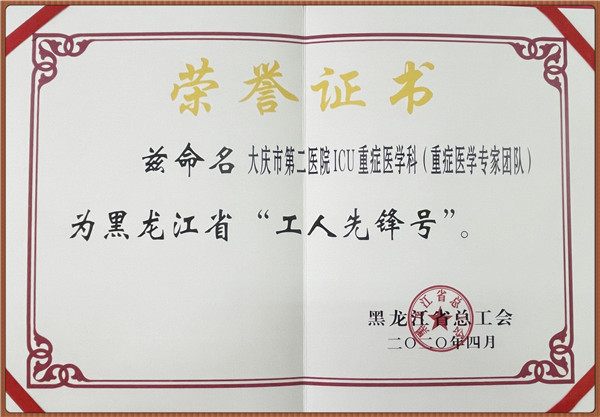 荣誉证书
兹命名 大庆市第二医院ICU重症医学科（重症医学专家团队）
为黑龙江省“工人先锋号”。
黑龙江省总工会
二〇二〇年四月
黑龙江省总工会